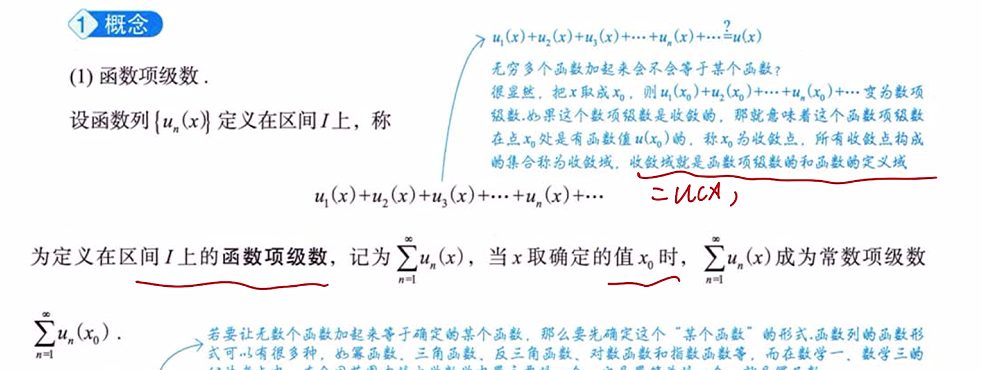 1 概念
u₁(x)+u₂(x)+u₃(x)+⋯+uₙ(x)+⋯≟u(x)
(1) 函数项级数.
无穷多个函数加起来会不会等于某个函数?
很显然, 把x取成x₀, 则u₁(x₀)+u₂(x₀)+⋯+uₙ(x₀)+⋯变为数项
级数.如果这个数项级数是收敛的, 那就意味着这个函数项级数
设函数列{uₙ(x)}定义在区间I上, 称
在点x₀处是有函数值u(x₀)的, 称x₀为收敛点, 所有收敛点构成
的集合称为收敛域, 收敛域就是函数项级数的和函数的定义域
u₁(x)+u₂(x)+u₃(x)+⋯+uₙ(x)+⋯
为定义在区间I上的函数项级数, 记为∑_{n=1}^{∞}uₙ(x), 当x取确定的值x₀时, ∑_{n=1}^{∞}uₙ(x)成为常数项级数
∑_{n=1}^{∞}uₙ(x₀).
若要让无数个函数加起来等于确定的某个函数, 那么要先确定这个“某个函数”的形式.函数列的函数形
式可以有很多种, 如幂函数、三角函数、反三角函数、对数函数和指数函数等, 而在数学一、数学三的